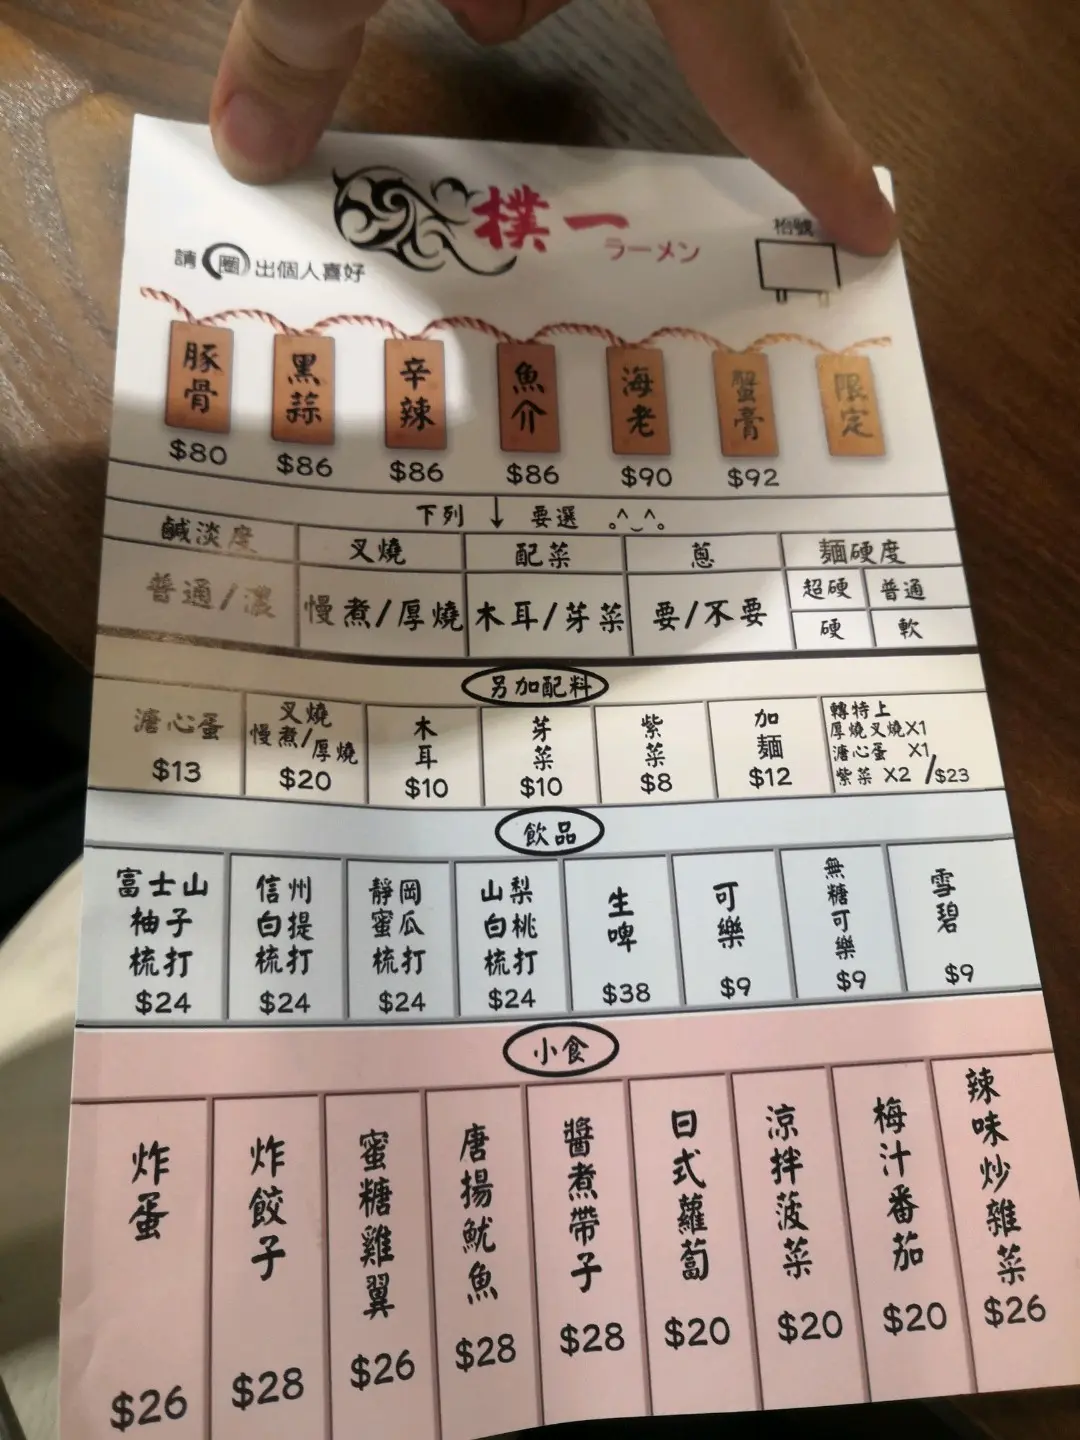 樸一
ラーメン
枱號
請圈出個人喜好
豚骨 黑蒜 辛辣 魚介 海老 蟹膏 限定
$80 $86 $86 $86 $90 $92
下列↓要選 。^‿^。
鹹淡度 叉燒 配菜 蔥 麵硬度
普通/濃 慢煮/厚燒 木耳/芽菜 要/不要 超硬 普通
硬 軟
另加配料
溏心蛋
$13
叉燒
慢煮/厚燒
$20
木耳
$10
芽菜
$10
紫菜
$8
加麵
$12
轉特上
厚燒叉燒X1
溏心蛋 X1
紫菜 X2 /$23
飲品
富士山
柚子
梳打
$24
信州
白提
梳打
$24
靜岡
蜜瓜
梳打
$24
山梨
白桃
梳打
$24
生啤
$38
可樂
$9
無糖可樂
$9
雪碧
$9
小食
炸蛋
$26
炸餃子
$28
蜜糖雞翼
$26
唐揚魷魚
$28
醬煮帶子
$28
日式蘿蔔
$20
涼拌菠菜
$20
梅汁番茄
$20
辣味炒雜菜
$26